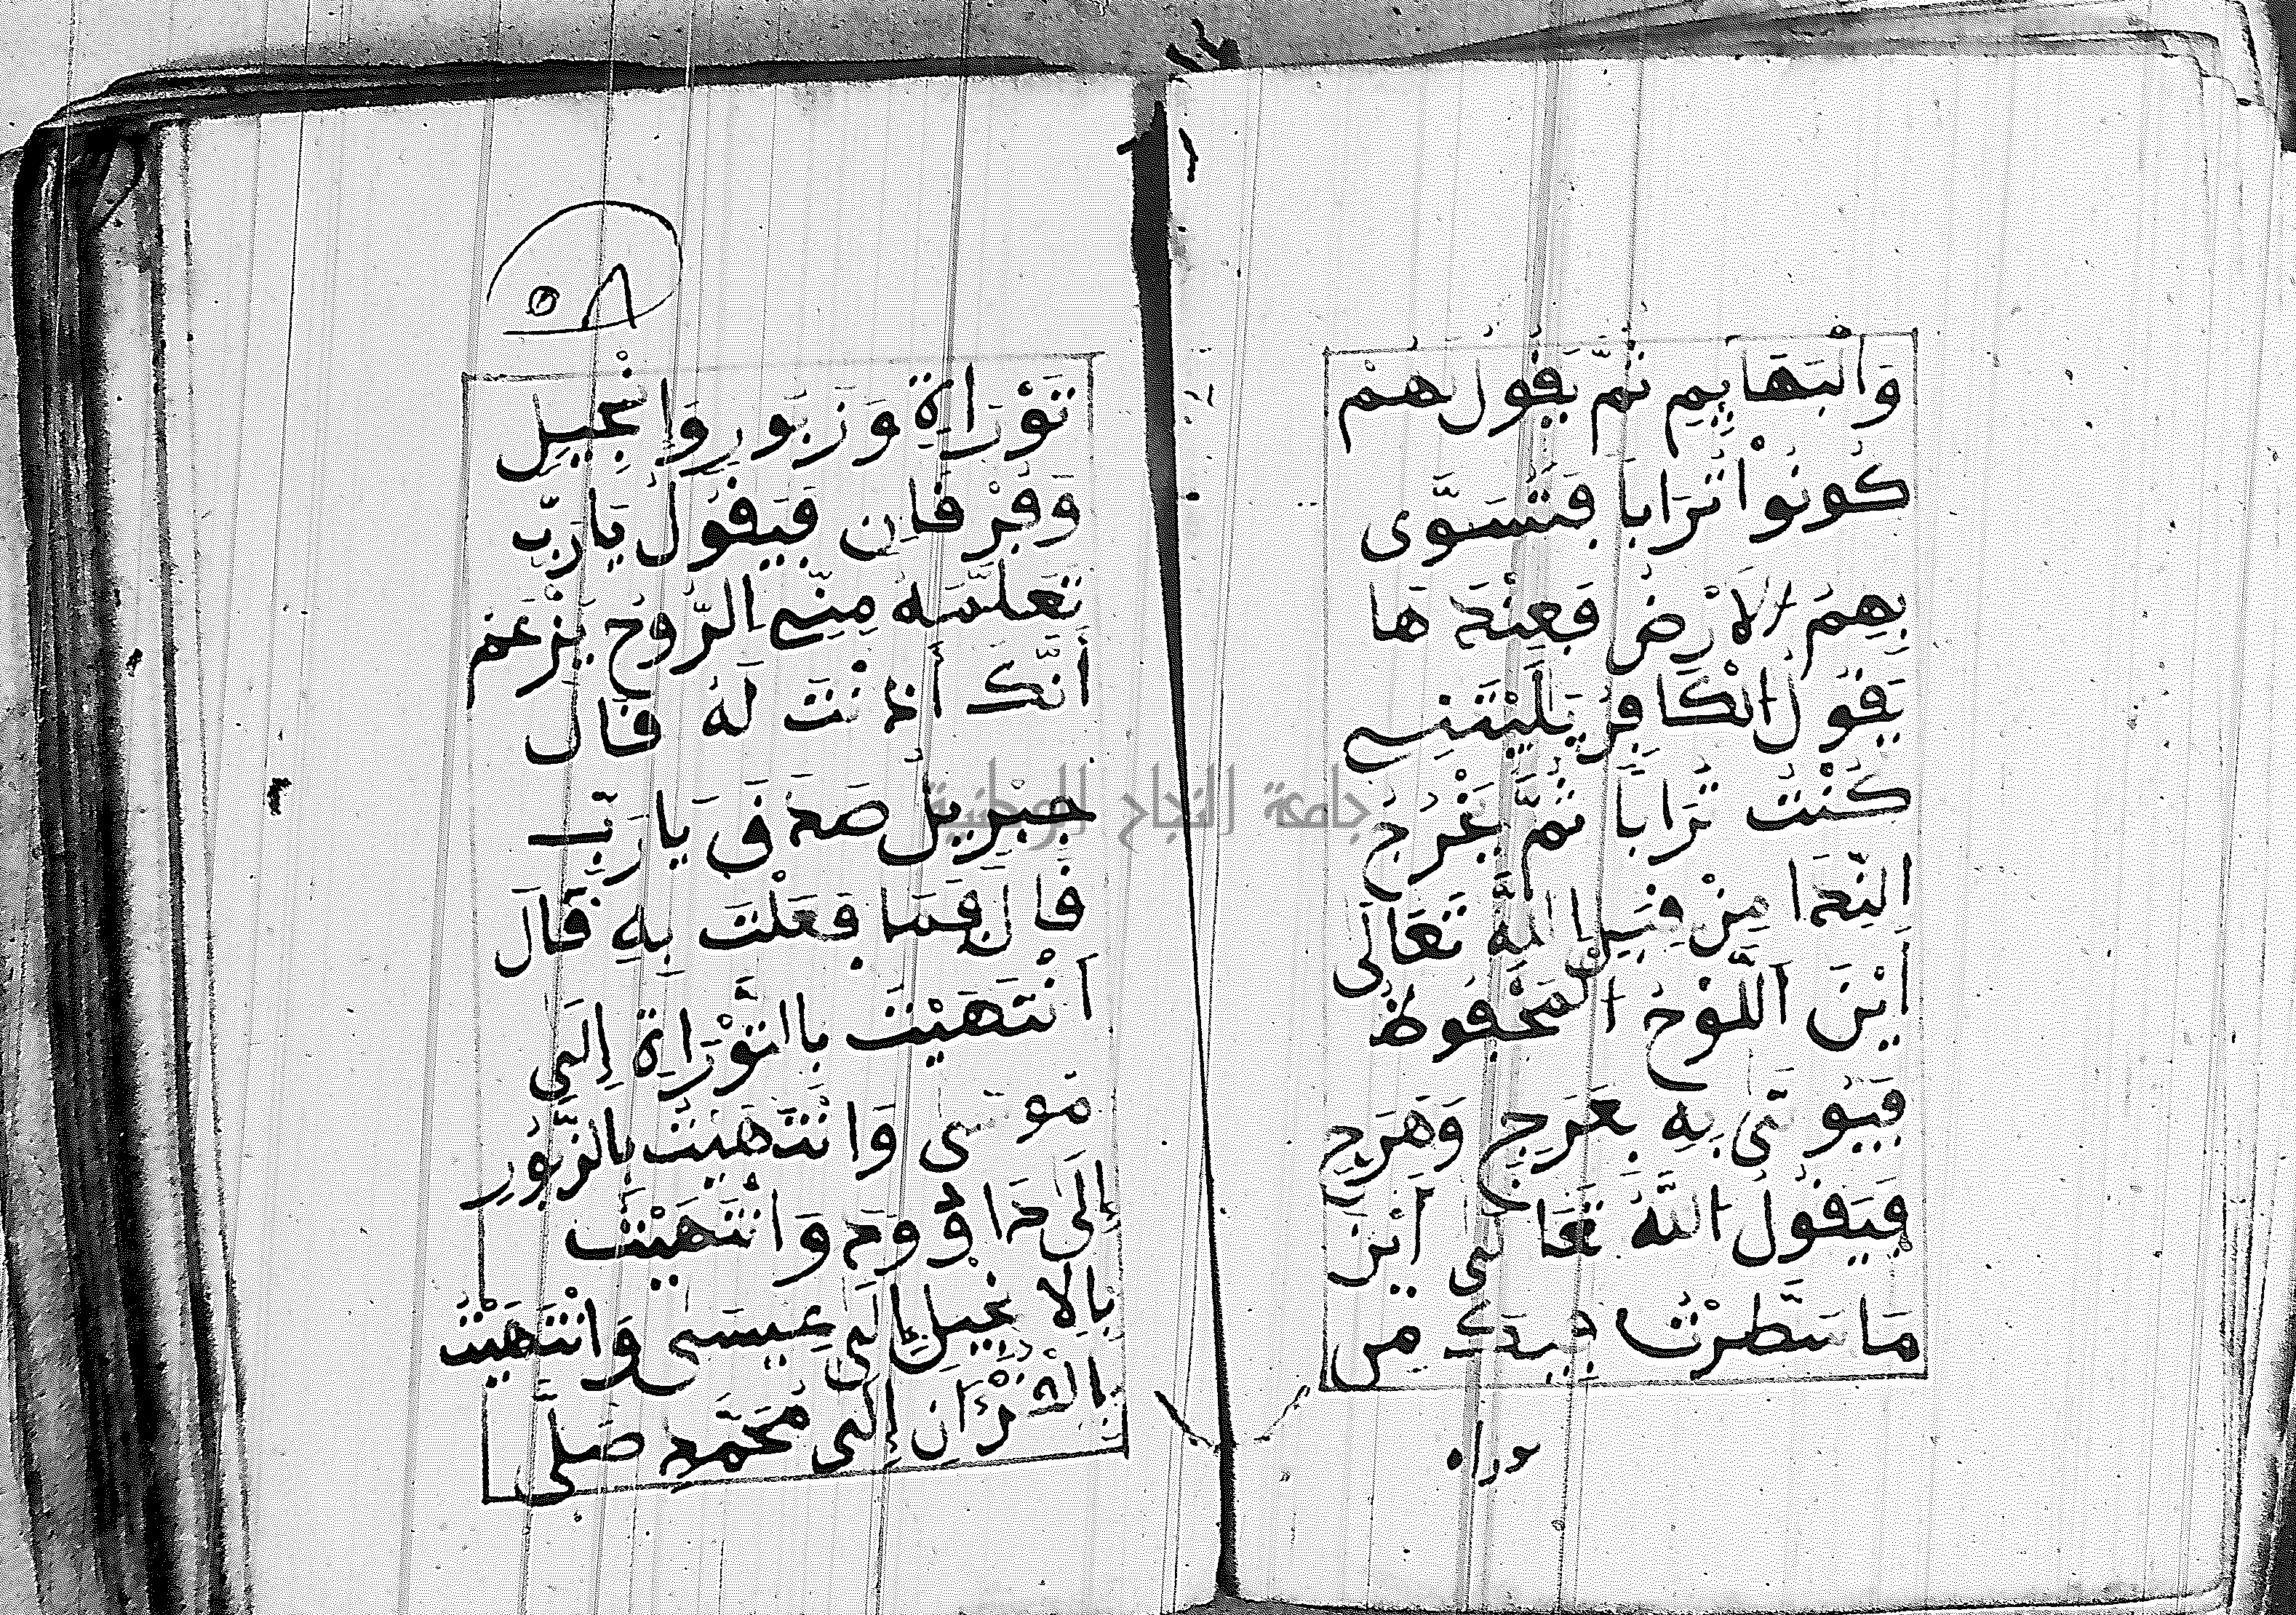 وَالْبَهَايِمِ ثُمَّ يَقُولُ لَهُمْ
كُونُوا تُرَابًا فَتُسَوَّى
بِهِمُ الأَرْضُ فَعِنْدَهَا
يَقُولُ الْكَافِرُ يَلَيْتَنِي
كُنْتُ تُرَابًا ثُمَّ يَخْرُجُ
النِّدَا مِنْ قِبَلِ اللَّهِ تَعَالَى
أَيْنَ اللَّوْحُ الْمَحْفُوظُ
فَيُوتَى بِهِ بَعَرَجٍ وَهَرَجٍ
فَيَقُولُ اللَّهُ تَعَالَى أَيْنَ
مَا سَطَّرْتُ فِيكَ مِن
توراه
٥٨
تَوْرَاةٍ وَزَبُورٍ وَإِنْجِيلٍ
وَفُرْقَانٍ فَيَقُولُ يَارَبِّ
تَعَلَّمَهُ مِنِّي الرُّوحُ يَزْعَمُ
أَنَّكَ أَذِنْتَ لَهُ قَالَ
جِبْرِيلُ صَدَقَ يَارَبِّ
قَالَ فَمَا فَعَلْتَ بِهِ قَالَ
انْتَهَيْتُ بِالتَّوْرَاةِ إِلَى
مُوسَى وَانْتَهَيْتُ بِالزَّبُورِ
إِلَى دَاوُودَ وَانْتَهَيْتُ
بِالإِنْجِيلِ إِلَى عِيسَى وَانْتَهَيْتُ
بِالْقُرْءَانِ إِلَى مُحَمَّدٍ صَلَّى
جامعة النجاح الوطنية